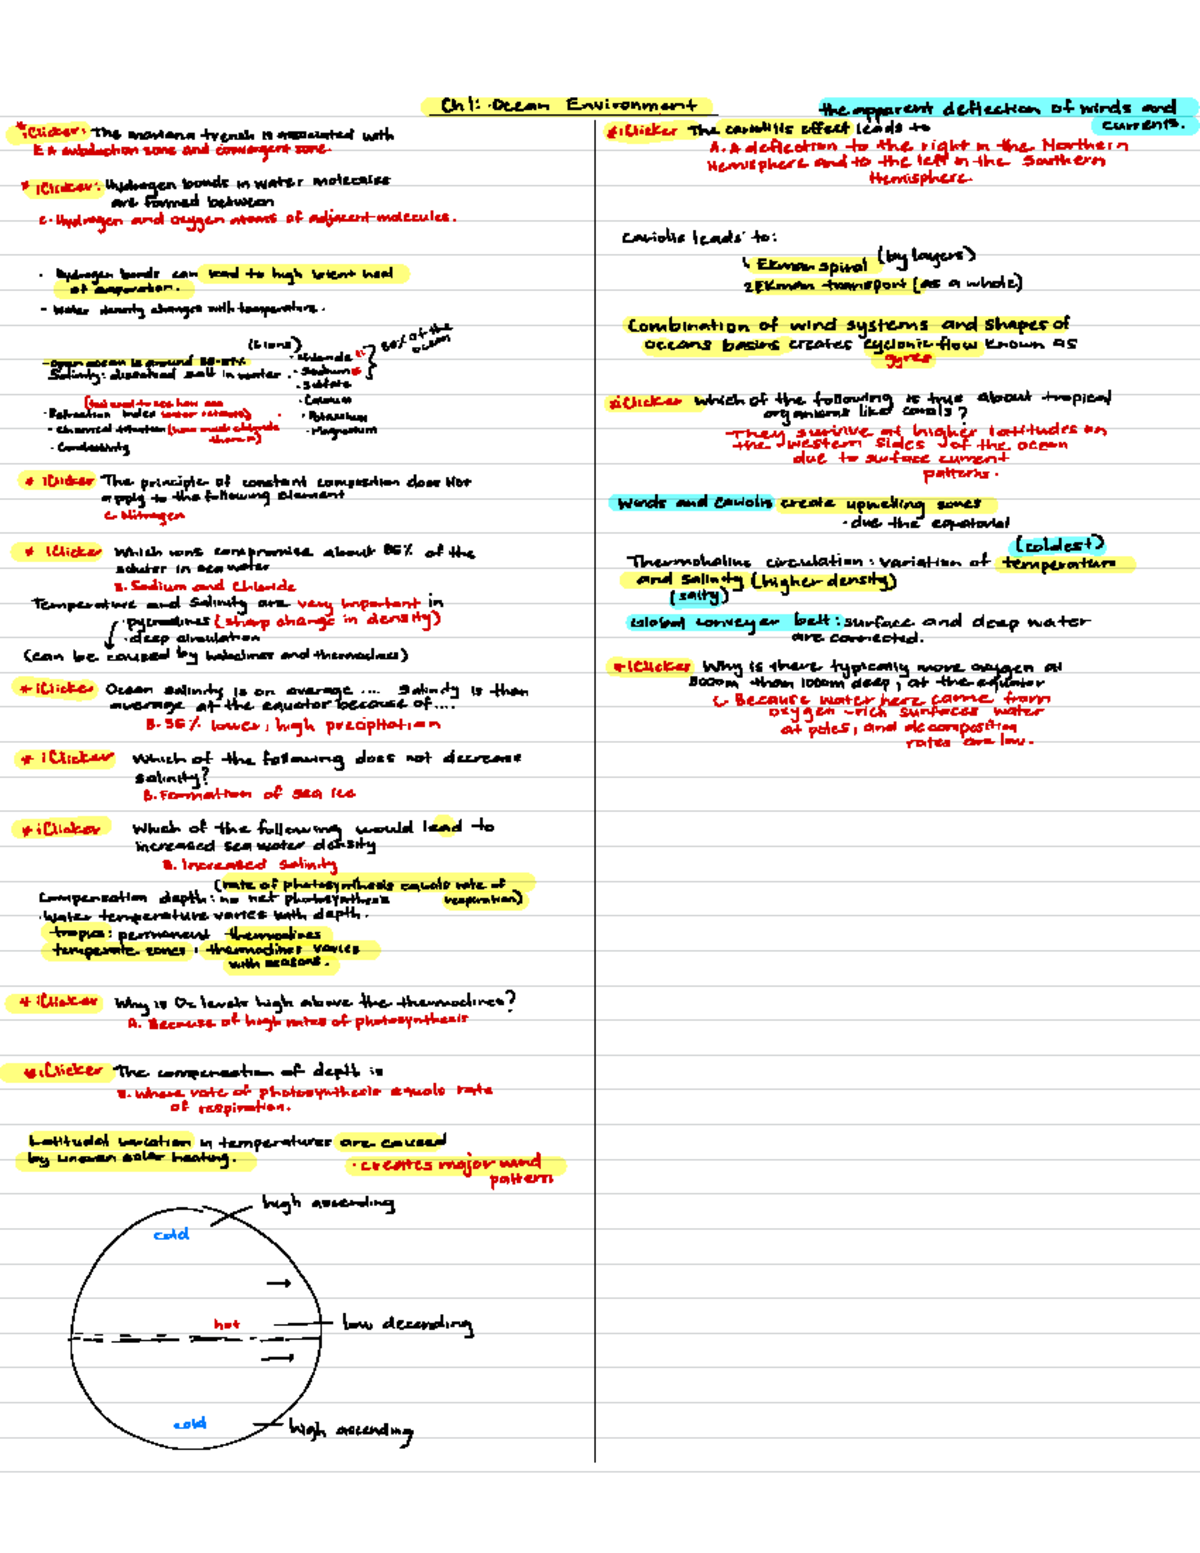 Ch1: Ocean Environment
*iClicker: The mariana trench is associated with
E A subduction zone and convergent zone.
* iClicker: Hydrogen bonds in water molecules
are formed between
C. Hydrogen and oxygen atoms of adjacent molecules.
· Hydrogen bonds can lead to high latent heat
of evaporation.
- Water density changes with temperature.
- open ocean is around
Salinity: dissolved salt in water.
(6 ions)
· Chloride
· Sodium
· Sulfate
· Calcium
· Potassium
· Magnesium
86% of the
ocean
· Refraction index
· Chemical titration (how much chloride
there is)
· Conductivity
* iClicker The principle of constant composition does Not
apply to the following element
C. Nitrogen
* iClicker Which ions compromise about 86% of the
solutes in sea water
B. Sodium and Chloride
Temperature and Salinity are very important in
· pycnoclines (sharp change in density)
· deep circulation
(can be caused by haloclines and thermoclines)
* iClicker Ocean salinity is on average .... Salinity is than
average at the equator because of....
B. 35% lower, high precipitation
* iClicker Which of the following does not decrease
salinity?
B. Formation of sea ice
* iClicker Which of the following would lead to
increased sea water density
B. Increased salinity
(rate of photosynthesis equals rate of
respiration)
Compensation depth: no net photosynthesis
· Water temperature varies with depth.
tropics: permanent thermoclines
temperate zones: thermoclines varies
with seasons.
* iClicker Why is O2 levels high above the thermoclines?
A. Because of high rates of photosynthesis
* iClicker The compensation of depth is
B. Where rate of photosynthesis equals rate
of respiration.
Latitudal variation in temperatures are caused
by uneven solar heating.
· creates major wind
pattern
high ascending
cold
hot
low decending
cold
high ascending
the apparent deflection of winds and
currents.
*iClicker The coriolis effect leads to
A. A deflection to the right in the Northern
Hemisphere and to the left in the Southern
Hemisphere.
coriolis leads to:
1. Ekman spiral (by layers)
2 Ekman transport (as a whole)
Combination of wind systems and shapes of
oceans basins creates cyclonic flow known as
gyres
*iClicker which of the following is true about tropical
organisms like corals?
- They survive at higher latitudes on
the western sides of the ocean
due to surface current
patterns.
Winds and Coriolis create upwelling zones
· due the equatorial
(coldest)
Thermohaline circulation: variation of temperature
and salinity (higher density)
(salty)
Global conveyer belt: surface and deep water
are connected.
* iClicker Why is there typically more oxygen at
3000m than 1000m deep, at the equator
C. Because water here came from
oxygen-rich surfaces water
at poles, and decomposition
rates are low.